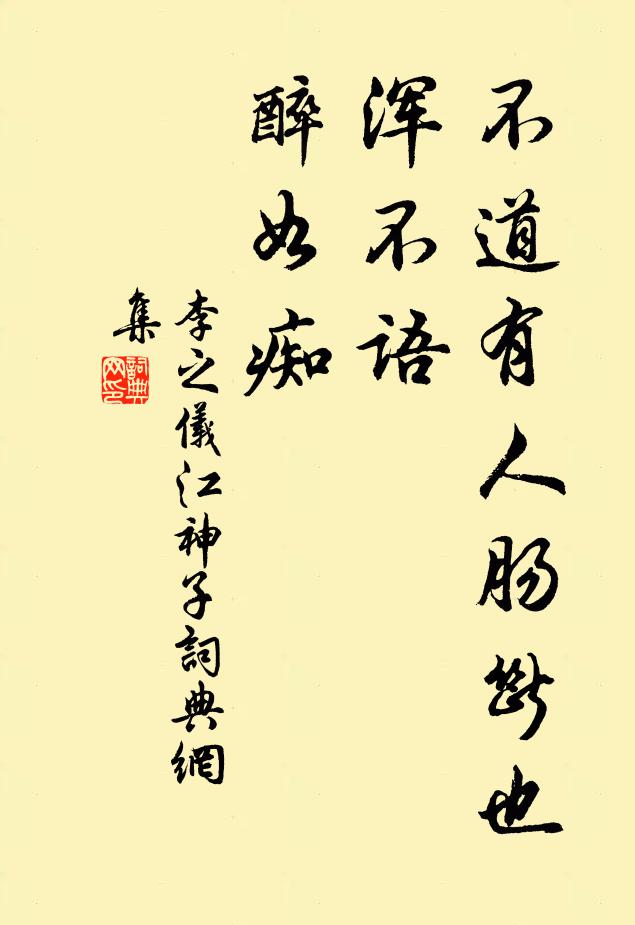 不道有人肠斷也
浑不語
醉如痴
李之儀江神子詞典網
集
詞典网印